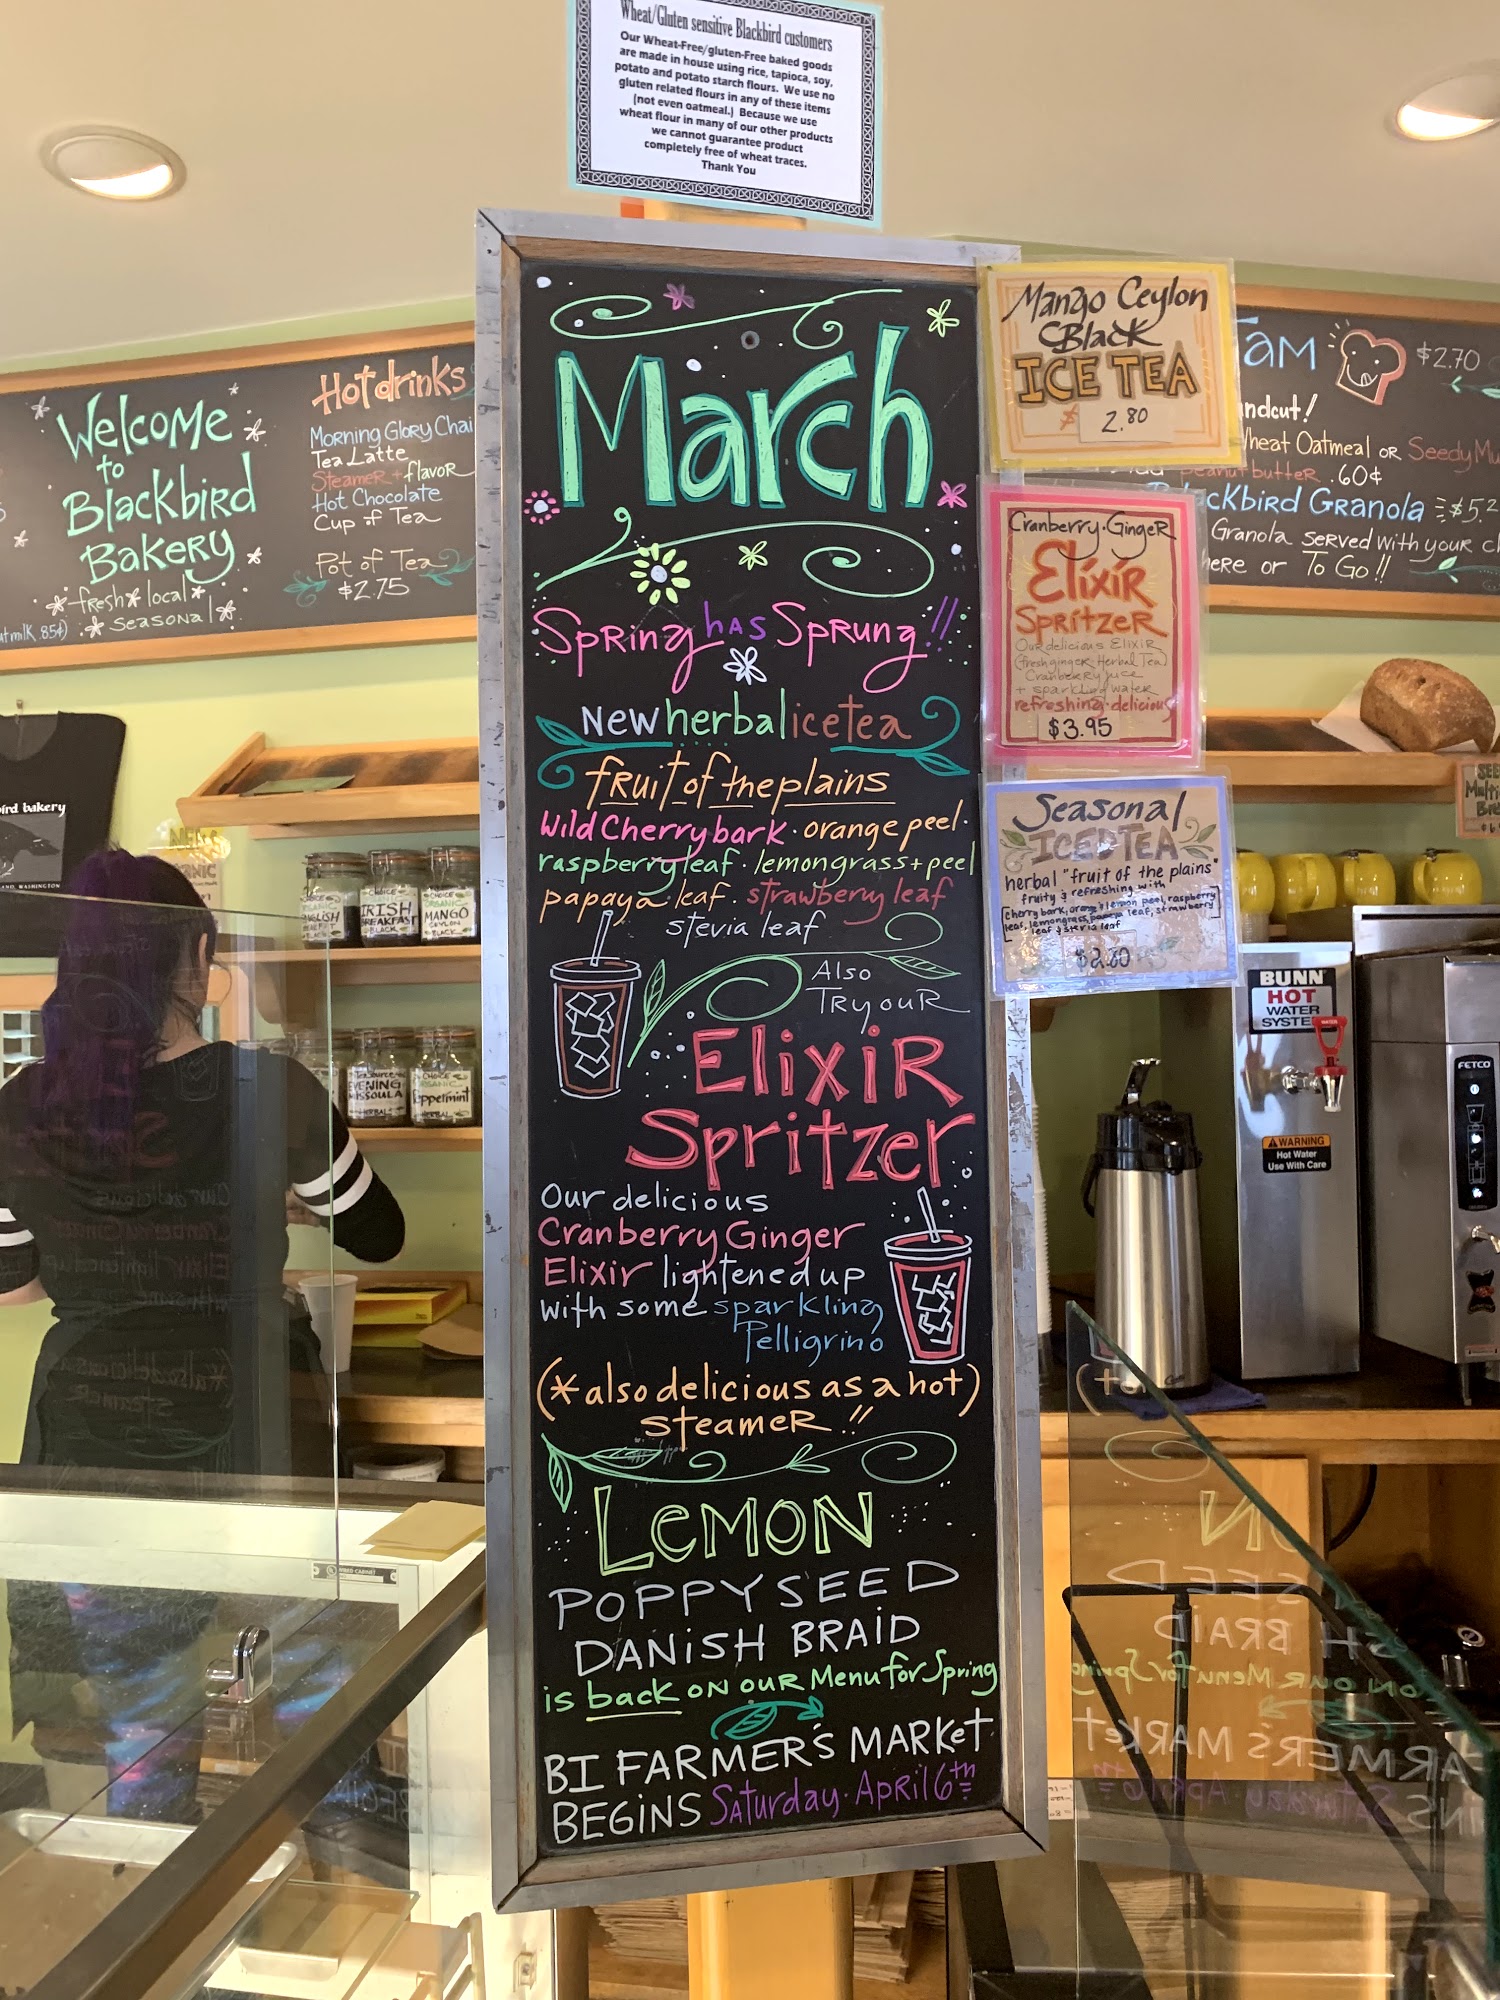 Wheat/Gluten sensitive Blackbird customers
Our Wheat-Free/gluten-Free baked goods
are made in house using rice, tapioca, soy,
potato and potato starch flours. We use no
gluten related flours in any of these items
(not even oatmeal.) Because we use
wheat flour in many of our other products
we cannot guarantee product
completely free of wheat traces.
Thank You
Welcome
to
Blackbird
Bakery
fresh local
seasonal
Hot drinks
Morning Glory Chai
Tea Latte
Steamer + flavor
Hot Chocolate
Cup of Tea
Pot of Tea
$2.75
March
Spring has Sprung!!
New herbal ice tea
fruit of the plains
Wild Cherry bark · orange peel ·
raspberry leaf · lemongrass + peel
papaya leaf · strawberry leaf
stevia leaf
Also
Try our
Elixir
Spritzer
Our delicious
Cranberry Ginger
Elixir lightened up
with some sparkling
Pelligrino
(* also delicious as a hot)
steamer!!
Lemon
POPPYSEED
DANISH BRAID
is back on our Menu for Spring
BI FARMER'S MARKET
BEGINS Saturday · April 6th
Mango Ceylon
Black
ICE TEA
$ 2.80
Cranberry · Ginger
Elixir
Spritzer
Our delicious Elixir
(fresh ginger Herbal Tea)
Cranberry juice
+ sparkling water
refreshing · delicious
$3.95
Seasonal
ICED TEA
herbal "fruit of the plains"
fruity & refreshing with
[cherry bark, orange & lemon peel, raspberry
leaf, lemongrass, papaya leaf, strawberry
leaf & stevia leaf]
$2.80
$2.70
ndcut!
heat Oatmeal or Seedy Mu
Peanut butter .60¢
ckbird Granola $5.2
Granola served with your c
here or To Go!!
ird bakery
AND, WASHINGTON
IRISH
BREAKFAST
BLACK
MANGO
CEYLON
BLACK
EVENING
MISSOULA
HERBAL
CHOICE
ORGANIC
Peppermint
HERBAL
BUNN
HOT
WATER
SYSTE
WARNING
Hot Water
Use With Care
FETCO